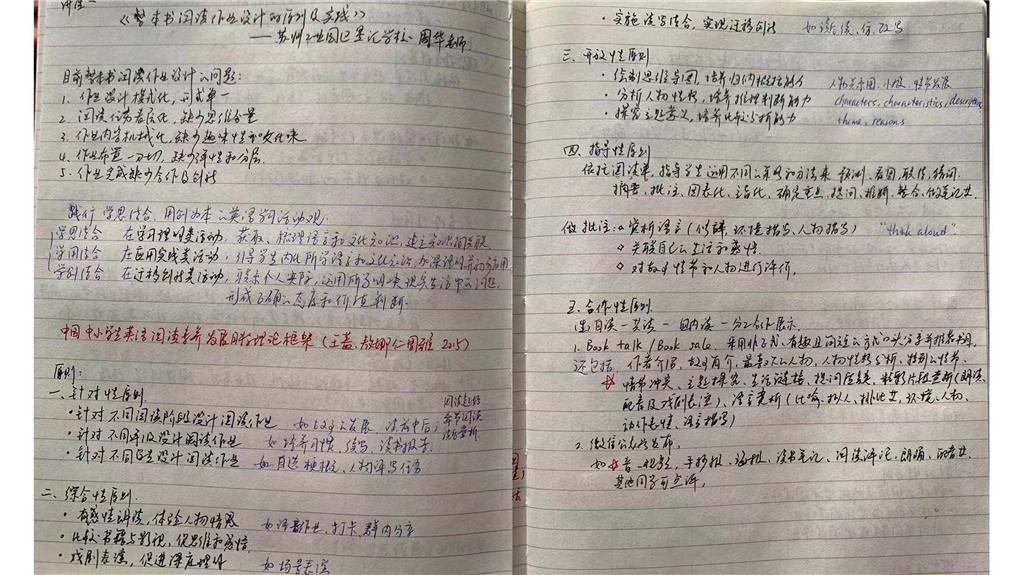 讲座一
《整本书阅读作业设计的原则及实践》
——苏州工业园区星汇学校 周华老师
目前整本书阅读作业设计的问题：
1. 作业设计模式化，形式单一
2. 阅读任务表层化，缺少思维含量
3. 作业内容机械化，缺少趣味性和文化味
4. 作业布置一刀切，缺少弹性和分层
5. 作业完成缺少合作及创新
践行学思结合，用创为本的英语学习活动观：
学思结合 在学习理解类活动，获取、梳理语言和文化知识，建立知识间关联
学用结合 在应用实践类活动，引导学生内化所学语言和文化知识，加深理解并初步应用
学创结合 在迁移创新类活动，联系个人实际，运用所学解决现实生活中的问题，
形成正确的态度和价值判断.
中国中小学生英语阅读素养发展目标理论框架（王蔷、敖娜仁图雅 2015）
原则：
一、针对性原则
· 针对不同阅读阶段设计阅读作业 如 发展 读前中后；
· 针对不同年级设计阅读作业 如 培养习惯、续写、读物推荐.
· 针对不同 设计阅读作业 如 人物评写信
章节阅读
二、综合性原则.
· 有感情朗读，体验人物情感 如语音作业、打卡、群内分享
· 比较书籍与影视，促思维和感悟.
· 戏剧表演，促进深度理解 如场景表演
· 实施读写结合，实现迁移创新 如 读、仿、改写
三、开放性原则
· 绘制思维导图，培养归纳概括能力 人物关系图、小报、情节发展
· 分析人物性格，培养推理判断能力 characters, characteristics, description
· 探究主题意义，培养比较分析能力 think, reasons
四、指导性原则
依托阅读单，指导学生运用不同的策略和方法来 预测、看图、联结、猜词、
摘要、批注、图表化、 确定重点、提问、推断、整合、做笔记等
做批注：a 赏析语言（修辞、环境描写、人物描写） "think aloud"
◇ 关联自己的生活和感悟.
◇ 对故事情节和人物进行评价.
五、合作性原则.
自读—共读— 组内读—分工合作展示.
1. Book talk / Book sale. 采用 有趣且 的方式口头分享并推荐书籍，
还包括 作者介绍、故事简介、最喜欢的人物、人物性格分析、 的情节.
情节冲突、主题探究、生活链接、提问 、精彩片段赏析（朗读、
配音及戏剧表演）、语言赏析（比喻、拟人、排比等，环境、人物、
动作表情、语言描写）
2. 微信公众号发布.
如 音视频、手抄报、海报、读书笔记、阅读评论、朗诵、配音等
其他同学可点评.